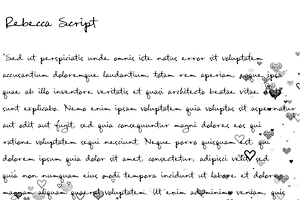 Rebecca Script
"Sed ut perspiciatis unde omnis iste natus error sit voluptatem
accusantium doloremque laudantium, totam rem aperiam, eaque ipsa
quae ab illo inventore veritatis et quasi architecto beatae vitae
sunt explicabo. Nemo enim ipsam voluptatem quia voluptas sit aspernatur
aut odit aut fugit, sed quia consequuntur magni dolores eos qui
ratione voluptatem sequi nesciunt. Neque porro quisquam est, qui
dolorem ipsum quia dolor sit amet, consectetur, adipisci velit, sed
quia non numquam eius modi tempora incidunt ut labore et dolore
magnam aliquam quaerat voluptatem. Ut enim ad minima veniam, quis